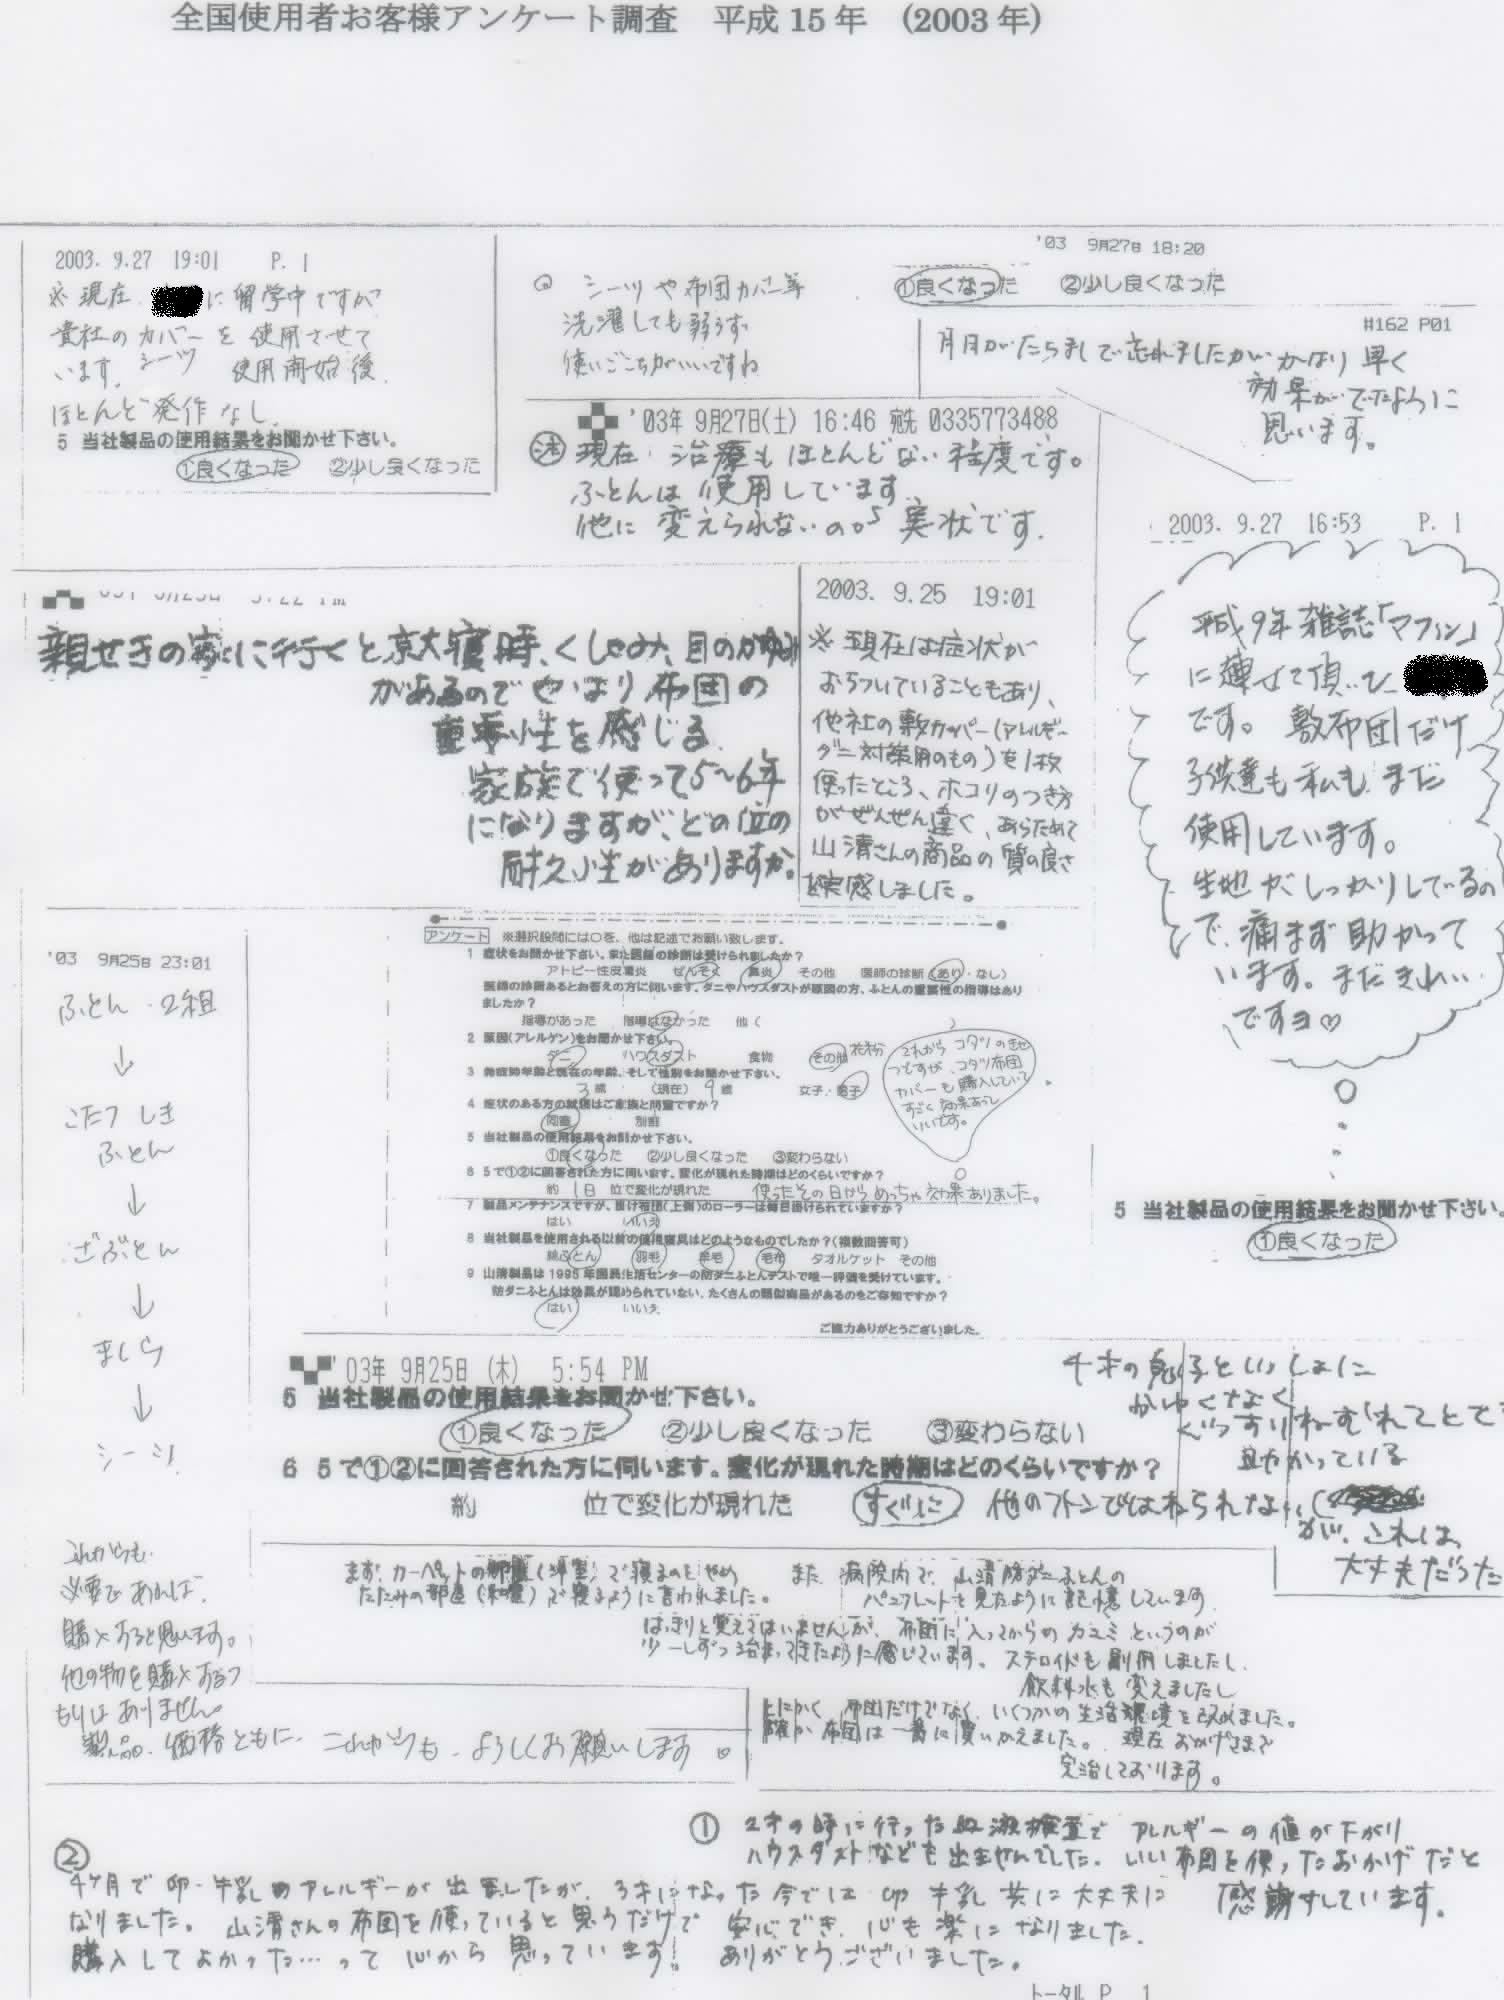 全国使用者お客様アンケート調査 平成15年 (2003年)
2003. 9.27 19:01 P. 1
※現在 に留学中ですが
貴社のカバーを使用させて
います。シーツ 使用開始後
ほとんど発作なし。
5 当社製品の使用結果をお聞かせ下さい。
①良くなった ②少し良くなった
◎ シーツや布団カバー等
洗濯しても弱らず
使いごこちがいいですね
'03 9月27日 18:20
①良くなった ②少し良くなった
#162 P01
月日がたちましで忘れましたが かなり早く
効果がでたように
思います。
'03年 9月27日(土) 16:46 宛先 0335773488
現在、治療もほとんどない程度です。
ふとんは使用しています。
他に変えられないのが実状です。
親せきの家に行くと 寝時、くしゃみ、目のかゆみ
があるのでやはり布団の
重要性を感じる。
家族で使って5~6年
になりますが、どの位の
耐久性がありますか。
2003. 9.25 19:01
※現在は症状が
おちついていることもあり、
他社の敷カバー(アレルギー
ダニ対策用のもの)を1枚
使ったところ、ホコリのつき方
がぜんぜん違く、あらためて
山清さんの商品の質の良さ
を実感しました。
2003. 9.27 16:53 P. 1
平成9年 雑誌「マフィン」
に載せて頂いた
です。敷布団だけ
子供達も私もまだ
使用しています。
生地がしっかりしているの
で、痛まず助かって
います。まだきれい
ですヨ♡
5 当社製品の使用結果をお聞かせ下さい。
①良くなった
'03 9月25日 23:01
ふとん・2組
↓
こたつ しき
ふとん
↓
ざぶとん
↓
まくら
↓
シーツ
これからも
必要であれば、
購入すると思います。
他の物を購入するつ
もりはありません。
製品、価格ともに、これからも、よろしくお願いします。
アンケート ※選択設問には○を、他は記述でお願い致します。
1 症状をお聞かせ下さい。また医師の診断は受けられましたか?
アトピー性皮膚炎 ぜんそく 鼻炎 その他 医師の診断(あり・なし)
医師の診断あるとお答えの方に伺います。ダニやハウスダストが原因の方、ふとんの重要性の指導はあり
ましたか?
指導があった 指導はなかった 他( )
2 原因(アレルゲン)をお聞かせ下さい。
ダニ ハウスダスト 食物 その他 花粉
3 発症時年齢と現在の年齢、そして性別をお聞かせ下さい。
3歳 (現在) 9歳 女子・男子
4 症状のある方の就寝はご家族と同室ですか?
同室 別室
5 当社製品の使用結果をお聞かせ下さい。
①良くなった ②少し良くなった ③変わらない
6 5で①②に回答された方に伺います。変化が現れた時期はどのくらいですか?
約 1日 位で変化が現れた 使ったその日からめっちゃ効果ありました。
7 製品メンテナンスですが、掛け布団(上側)のローラーは毎日掛けられていますか?
はい いいえ
8 当社製品を使用される以前の使用寝具はどのようなものでしたか?(複数回答可)
綿ふとん 羽毛 羊毛 毛布 タオルケット その他
9 山清製品は1995年国民生活センターの防ダニふとんテストで唯一評価を受けています。
防ダニふとんは効果が認められていない、たくさんの類似商品があるのをご存知ですか?
はい いいえ
ご協力ありがとうございました。
これから コタツのきせ
つですが、コタツ布団
カバーも購入していて
すごく効果あって
いいです。
'03年 9月25日 (木) 5:54 PM
5 当社製品の使用結果をお聞かせ下さい。
①良くなった ②少し良くなった ③変わらない
6 5で①②に回答された方に伺います。変化が現れた時期はどのくらいですか?
約 位で変化が現れた すぐに 他のフトンではねられない
が、これは
大丈夫だった
息子といっしょに
かゆくなく
ぐっすりねむれてとて
助かっている
まず、カーペットの部屋(洋室)で寝るのをやめ
たたみの部屋(和室)で寝るように言われました。
また、病院内で、山清防ダニふとんの
パンフレットを見たように記憶しています。
はっきりと覚えてはいませんが、布団に入ってからのカユミというのが
少しずつ治まってきたように感じています。ステロイドも副用しましたし、
飲料水も変えましたし
とにかく 布団だけでなく、いくつかの生活環境を改めました。
確か 布団は一番に買いかえました。現在おかげさまで
完治しております。
① 2才の時に行った血液検査で アレルギーの値が下がり
ハウスダストなども出ませんでした。いい布団を使ったおかげだと
感謝しています。
② 4ヶ月で卵・牛乳のアレルギーが出ましたが、3才になった今では 卵 牛乳 共に大丈夫に
なりました。山清さんの布団を使っていると思うだけで 安心でき、心も楽になりました。
購入してよかった…って 心から思っています! ありがとうございました。
トータル P. 1